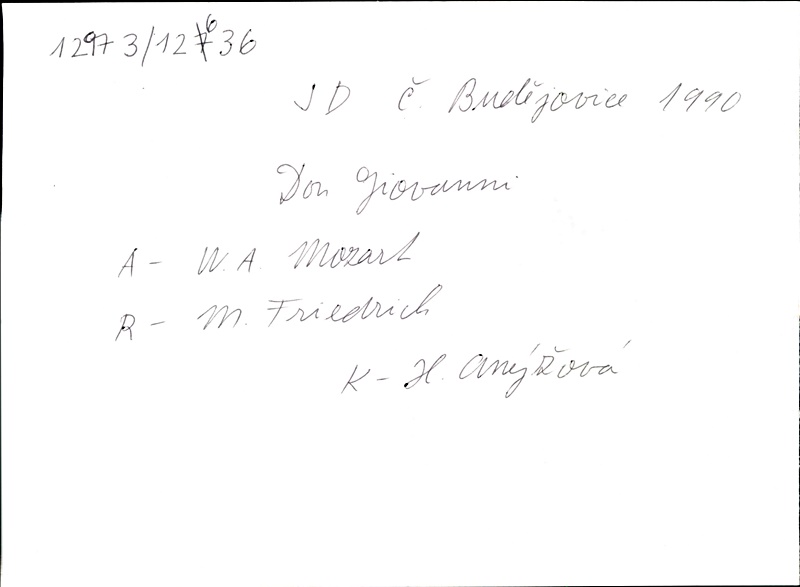 12973/12636
JD Č. Budějovice 1990
Don Giovanni
A - W. A. Mozart
R - M. Friedrich
K - H. Anýžová